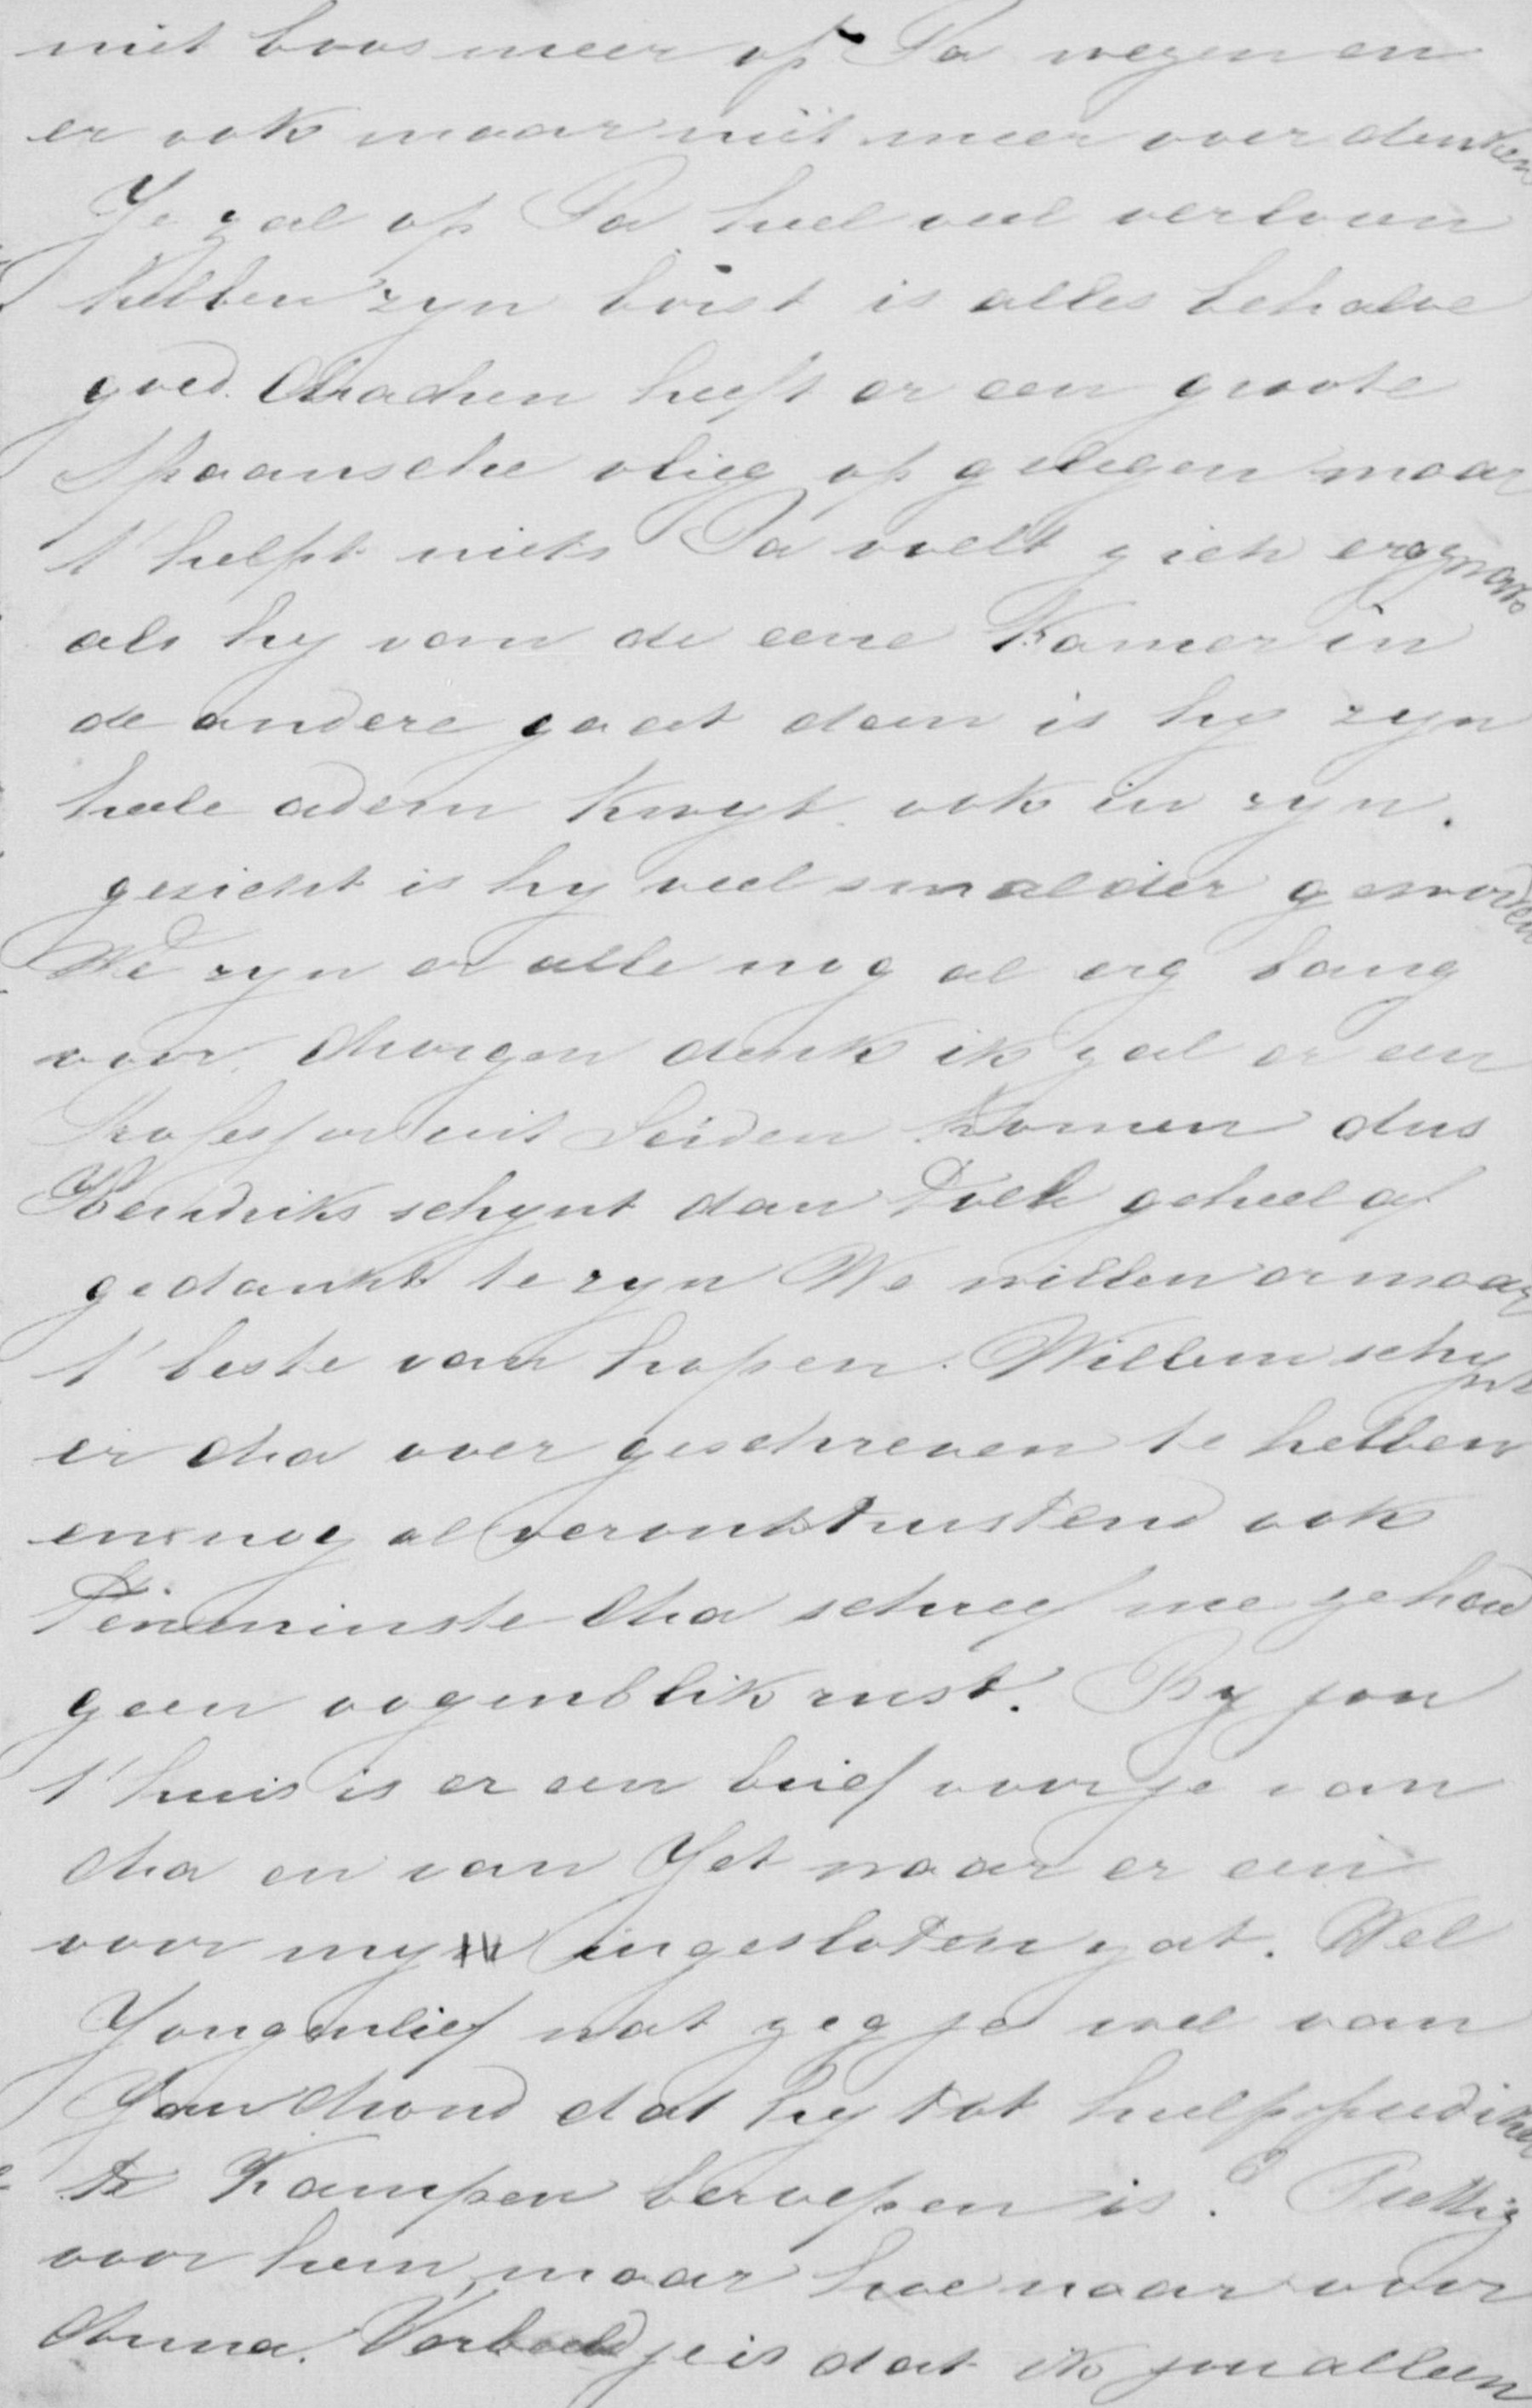 niet boos meer op Pa wezen en
er ook maar niet meer over denken
Je zal op Pa heel veel verloren
hebben zyn borst is alles behalve
goed. Machen heeft er een groote
Spaansche vlieg op gelegen maar
t' helpt niets Pa voelt zich erg zwak
als hy van de eene Kamer in
de andere gaat dan is hy zyn
heele adem kwyt. ook in zyn.
gezicht is hy veel smalder geworden
We zyn er alle nog al erg bang
voor, Morgen denk ik zal er een
Professor uit Leiden komen dus
Hendriks schynt dan toch geheel af
gedankt te zyn We willen er maar
t' beste van hopen. Willem schynt
er Ma over geschreven te hebben
en nog al verontrustend ook
Tenminste Ma schreef me ze had
geen oogenblik rust. By jou
t' huis is er een brief voor je van
Ma en van Jet waar er een
voor my ingesloten zat. Wel
Jongenlief wat zeg je wel van
Jan Mond dat hy tot hulpprediker
te Kampen beroepen is? Prettig
voor hem maar hoe naar voor
Anna. Verbeeld je is dat ik jou alleen